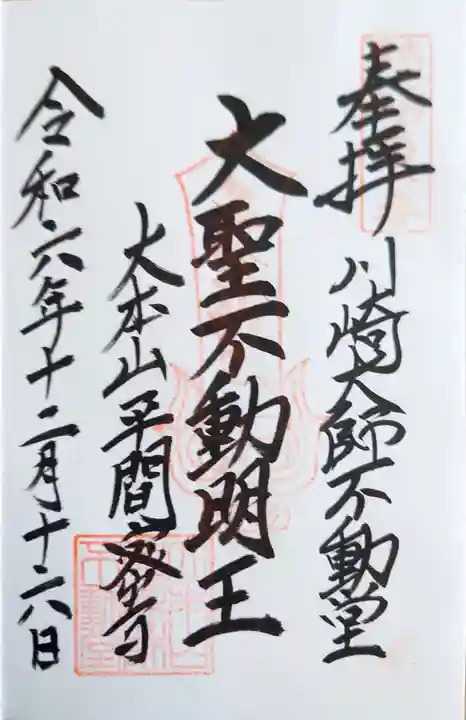 奉拝
川崎大師不動堂
大聖不動明王
大本山平間寺
令和六年十二月十六日